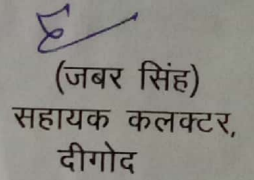 (जबर सिंह)
सहायक कलक्टर,
दीगोद